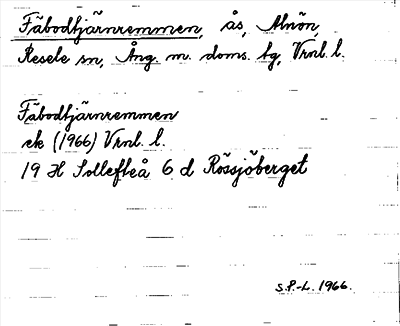 Fäbodtjärnremmen, ås, Alnön,
Resele sn, Ång. m. doms. tg, Vrnl. l.
Fäbodtjärnremmen
ek (1966) Vrnl. l.
19 H Sollefteå 6 d Rössjöberget
S.P.-L. 1966.